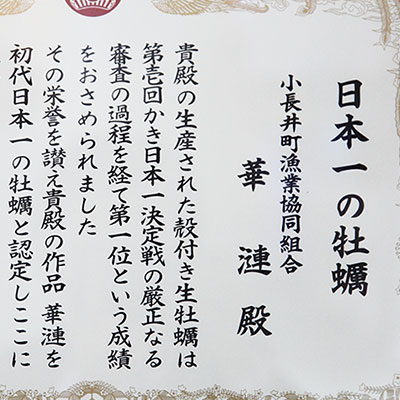 日本一の牡蠣
小長井町漁業協同組合
華漣殿
貴殿の生産された殻付き生牡蠣は
第壱回かき日本一決定戦の厳正なる
審査の過程を経て第一位という成績
をおさめられました
その栄誉を讃え貴殿の作品 華漣を
初代日本一の牡蠣と認定しここに